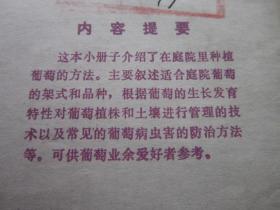 内容提要
这本小册子介绍了在庭院里种植
葡萄的方法。主要叙述适合庭院葡萄
的架式和品种，根据葡萄的生长发育
特性对葡萄植株和土壤进行管理的技
术以及常见的葡萄病虫害的防治方法
等。可供葡萄业余爱好者参考。